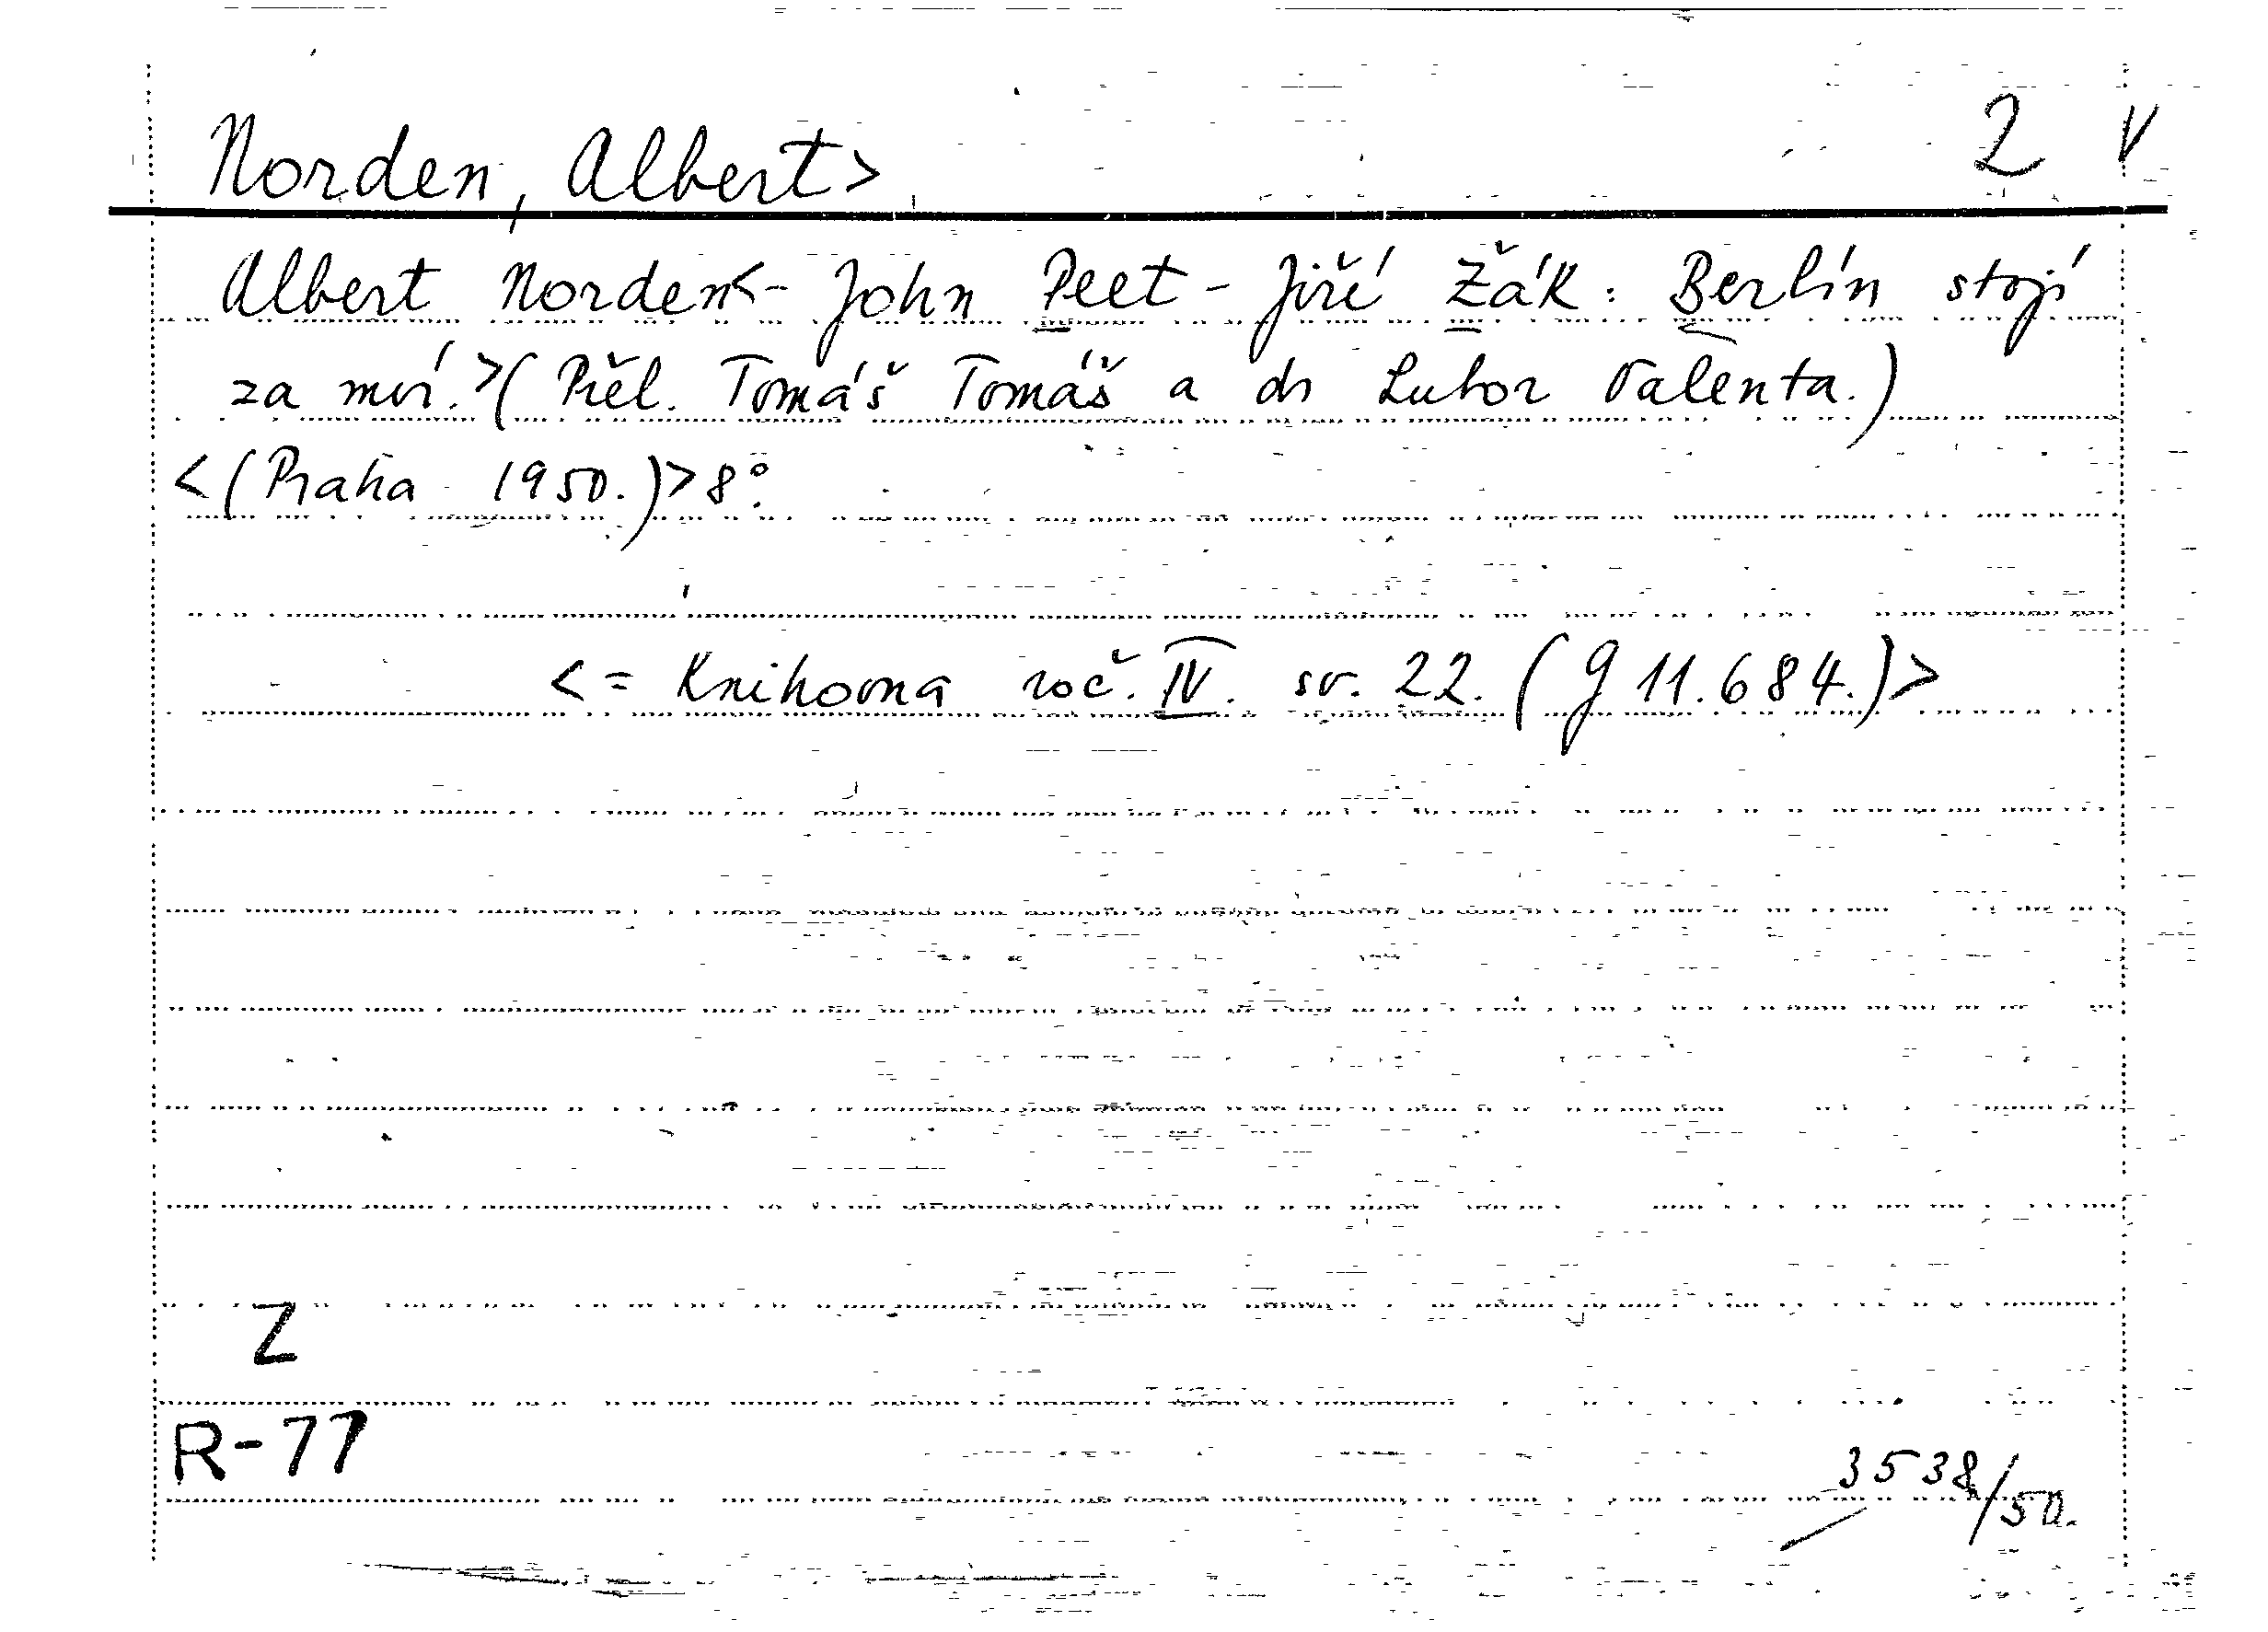 Norden, Albert> 2 V
Albert Norden<- John Peet - Jiří Žák: Berlín stojí
za mír.>(Přel. Tomáš Tomáš a dr Lubor Valenta.)
<(Praha 1950.)>8°.
<= Knihovna roč. IV. sv. 22. (g 11.684.)>
Z
R-77
3538/50.